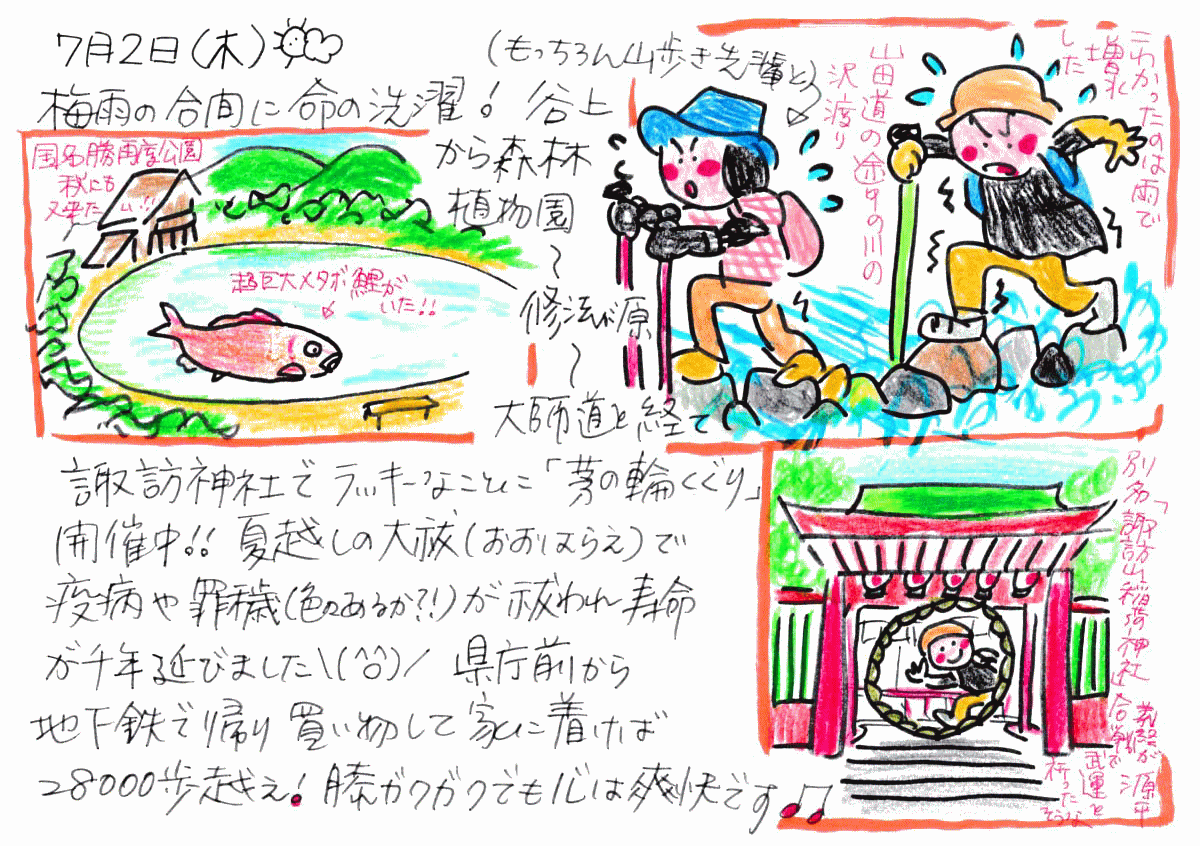 7月2日(木)
(もっちろん山歩き先輩と)
梅雨の合間に命の洗濯! 谷上
から森林
植物園
~
修法ヶ原
~
大師道と経て
諏訪神社でラッキーなことに「茅の輪くぐり」
開催中!! 夏越しの大祓(おおはらえ)で
疫病や罪穢(色のあるか?!)が祓われ寿命
が千年延びました\(^O^)/ 県庁前から
地下鉄で帰り買い物して家に着けば
28000歩越え! 膝ガクガクでも心は爽快です♪♫
国名勝再度公園
秋にも
又来たーい!!
超巨大メタボ鯉が
いた!!
山田道の途中の川の
沢渡り
こわかったのは雨で
増水
した
別名「諏訪山稲荷神社」
義経が源平
合戦で
武運を
祈った
そうな